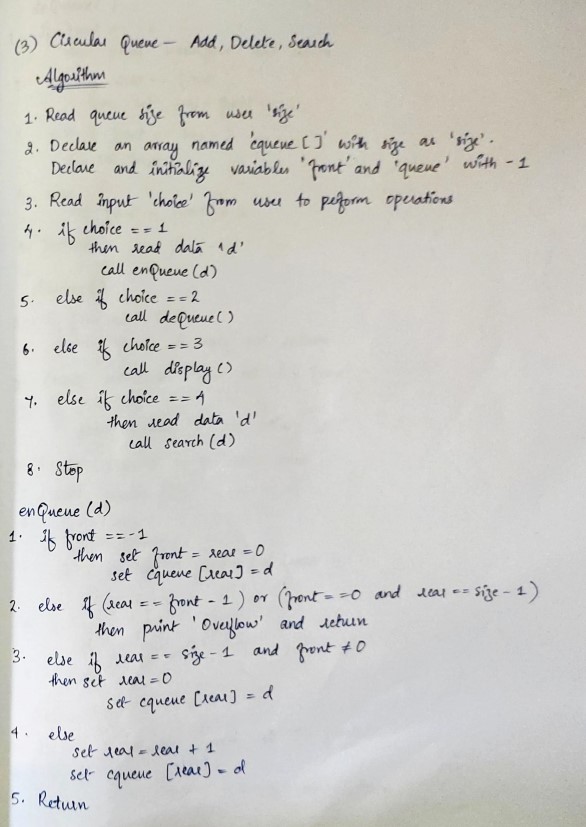 (3) Circular Queue - Add, Delete, Search
Algorithm
1. Read queue size from user 'size'
2. Declare an array named 'cqueue []' with size as 'size'.
Declare and initialize variables 'front' and 'queue' with -1
3. Read input 'choice' from user to perform operations
4. if choice == 1
then read data 'd'
call enQueue (d)
5. else if choice == 2
call deQueue()
6. else if choice == 3
call display ()
7. else if choice == 4
then read data 'd'
call search (d)
8. Stop
enQueue (d)
1. if front == -1
then set front = rear = 0
set cqueue [rear] = d
2. else if (rear == front - 1) or (front == 0 and rear == size - 1)
then print 'Overflow' and return
3. else if rear == size - 1 and front ≠ 0
then set rear = 0
set cqueue [rear] = d
4. else
set rear = rear + 1
set cqueue [rear] = d
5. Return